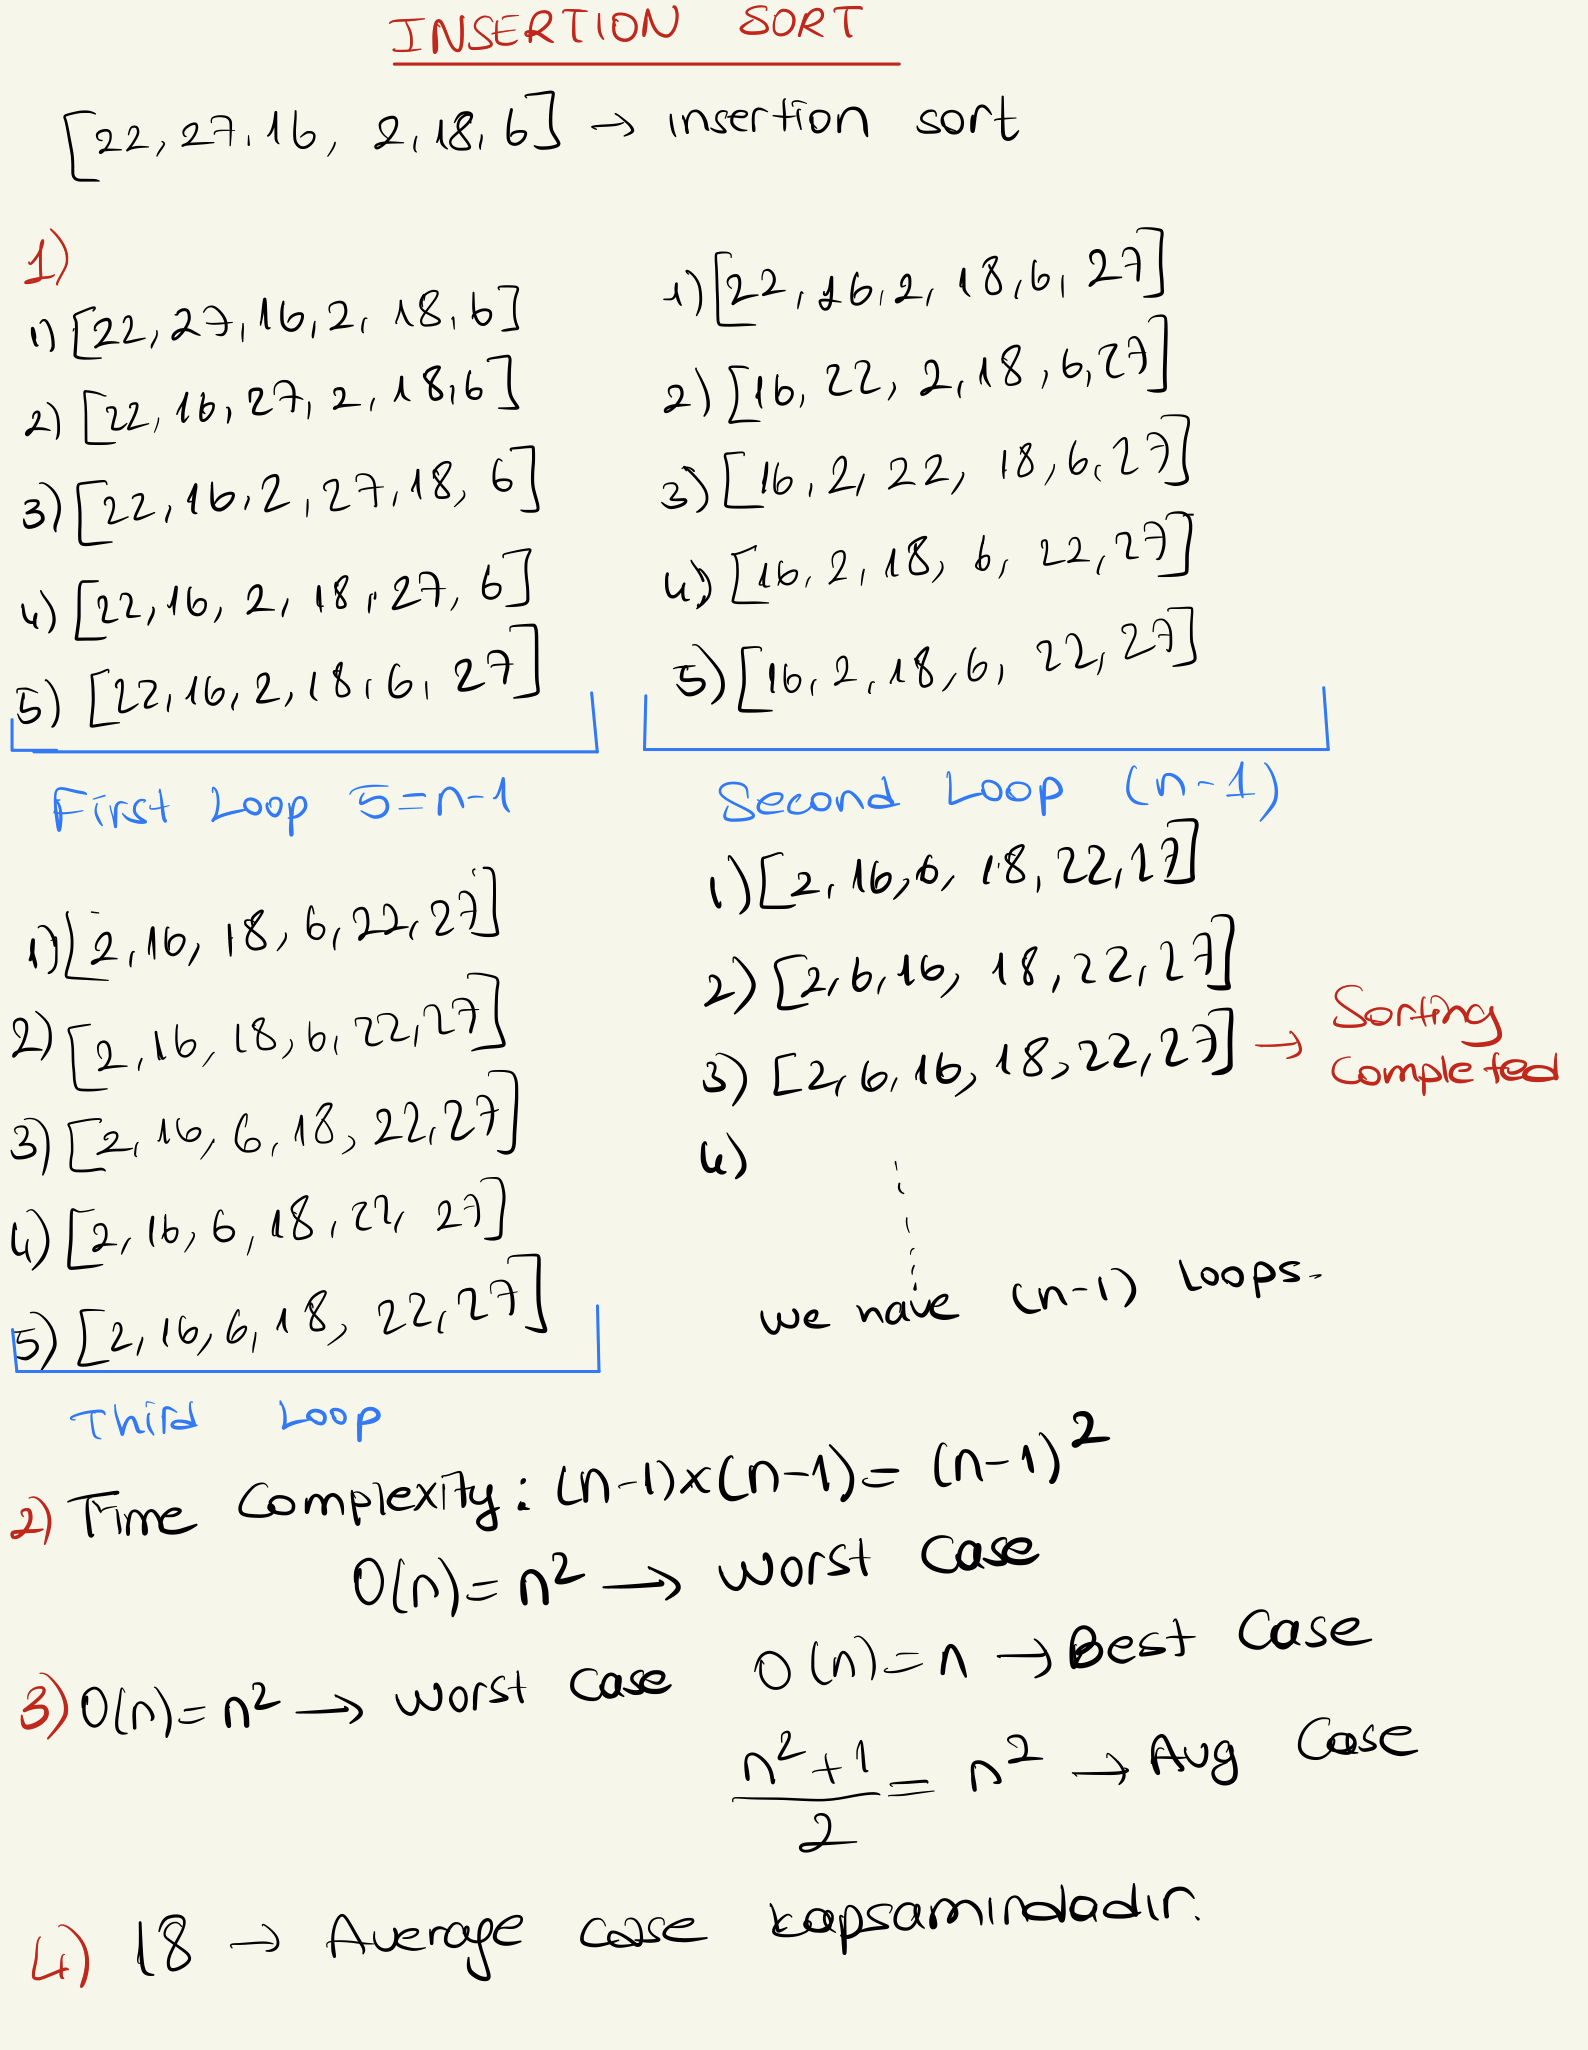 INSERTION SORT
[22, 27, 16, 2, 18, 6] → insertion sort
1)
1) [22, 27, 16, 2, 18, 6]
2) [22, 16, 27, 2, 18, 6]
3) [22, 16, 2, 27, 18, 6]
4) [22, 16, 2, 18, 27, 6]
5) [22, 16, 2, 18, 6, 27]
First Loop 5=n-1
1) [22, 16, 2, 18, 6, 27]
2) [16, 22, 2, 18, 6, 27]
3) [16, 2, 22, 18, 6, 27]
4) [16, 2, 18, 6, 22, 27]
5) [16, 2, 18, 6, 22, 27]
Second Loop (n-1)
1) [2, 16, 18, 6, 22, 27]
2) [2, 16, 18, 6, 22, 27]
3) [2, 16, 6, 18, 22, 27]
4) [2, 16, 6, 18, 22, 27]
5) [2, 16, 6, 18, 22, 27]
Third Loop
1) [2, 16, 6, 18, 22, 27]
2) [2, 6, 16, 18, 22, 27]
3) [2, 6, 16, 18, 22, 27] → Sorting
completed
4)
we have (n-1) Loops.
2) Time Complexity: (n-1)x(n-1) = (n-1)²
O(n) = n² → worst case
3) O(n) = n² → worst case O(n) = n → Best Case
n²+1/2 = n² → Avg Case
4) 18 → Average case kapsamindadır.